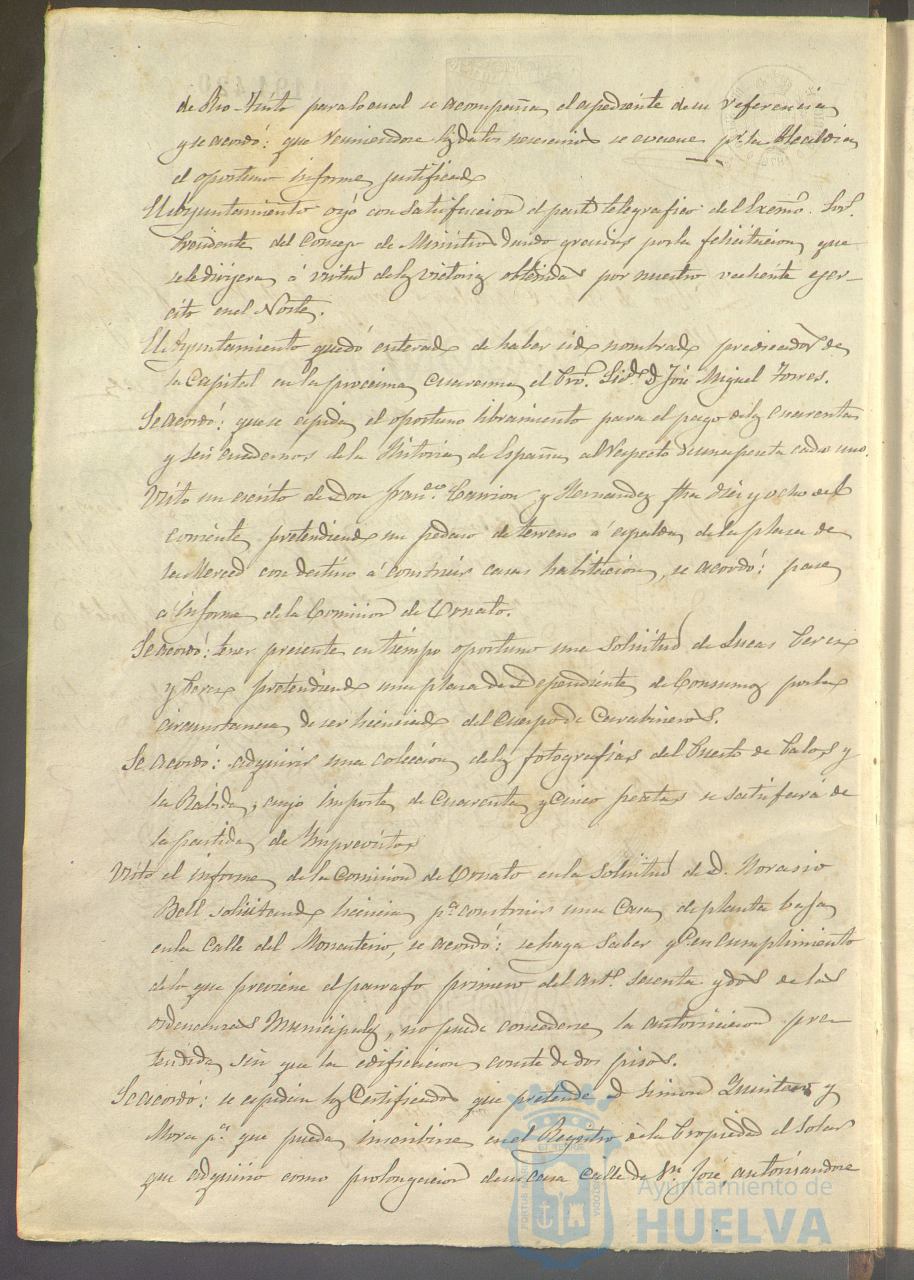 de Rio-Tinto para lo cual se acompaña el expediente de su referencia
y se acordó: que reuniendose los datos necesarios se evacue pr. la Alcaldia
el oportuno informe justificado
El Ayuntamiento oyó con satisfaccion el parte telegrafico del Excmo. Sor.
Presidente del Consejo de Ministros dando gracias por la felicitacion que
se le dirijera á virtud de las victorias obtenidas por nuestro valiente ejer-
cito en el Norte.
El Ayuntamiento quedó enterado de haber sido nombrado predicador de
la Capital en la procsima Cuaresma el Pro. Licdo. D. José Miguel Torres.
Se acordó: que se espida el oportuno libramiento para el pago de los cuarenta
y seis cuadernos de la Historia de España al respecto de una peseta cada uno.
Visto un escrito de Don Franco. Carrion y Hernandez fha diez y ocho del
corriente pretendiendo un pedaso de terreno á espaldas de la plasa de
la Merced con destino á construir casas habitacion, se acordó: pase
á informe de la Comision de Ornato.
Se acordó: tener presente en tiempo oportuno una solicitud de Lucas Perez
y Perez pretendiendo una plasa de Dependiente de Consumos por la
circunstancia de ser licenciado del Cuerpo de Carabineros.
Se acordó: adquirir una coleccion de las fotografias del Puerto de Palos y
la Rabida, cuyo importe de Cuarenta y Cinco pesetas se satisfará de
la partida de Imprevistos
Visto el informe de la Comision de Ornato en la solicitud de D. Horasio
Bell solicitando licencia pa. construir una Casa de planta baja
en la Calle del Monasterio, se acordó: se haga saber q. en cumplimiento
de lo que previene el parrafo primero del arto. sesenta y dos de las
ordenanzas Municipales, no puede concederse la autorisacion pre-
tendida sin que la edificacion conste de dos pisos.
Se acordó: se espidan los Certificados que pretende D. Simon Quintero y
Mora pa. que pueda inscribirse en el Registro de la Propiedad el Solar
que adquirio como prolongacion de su casa Calle de Sn. José, autorisandose
Ayuntamiento de
HUELVA